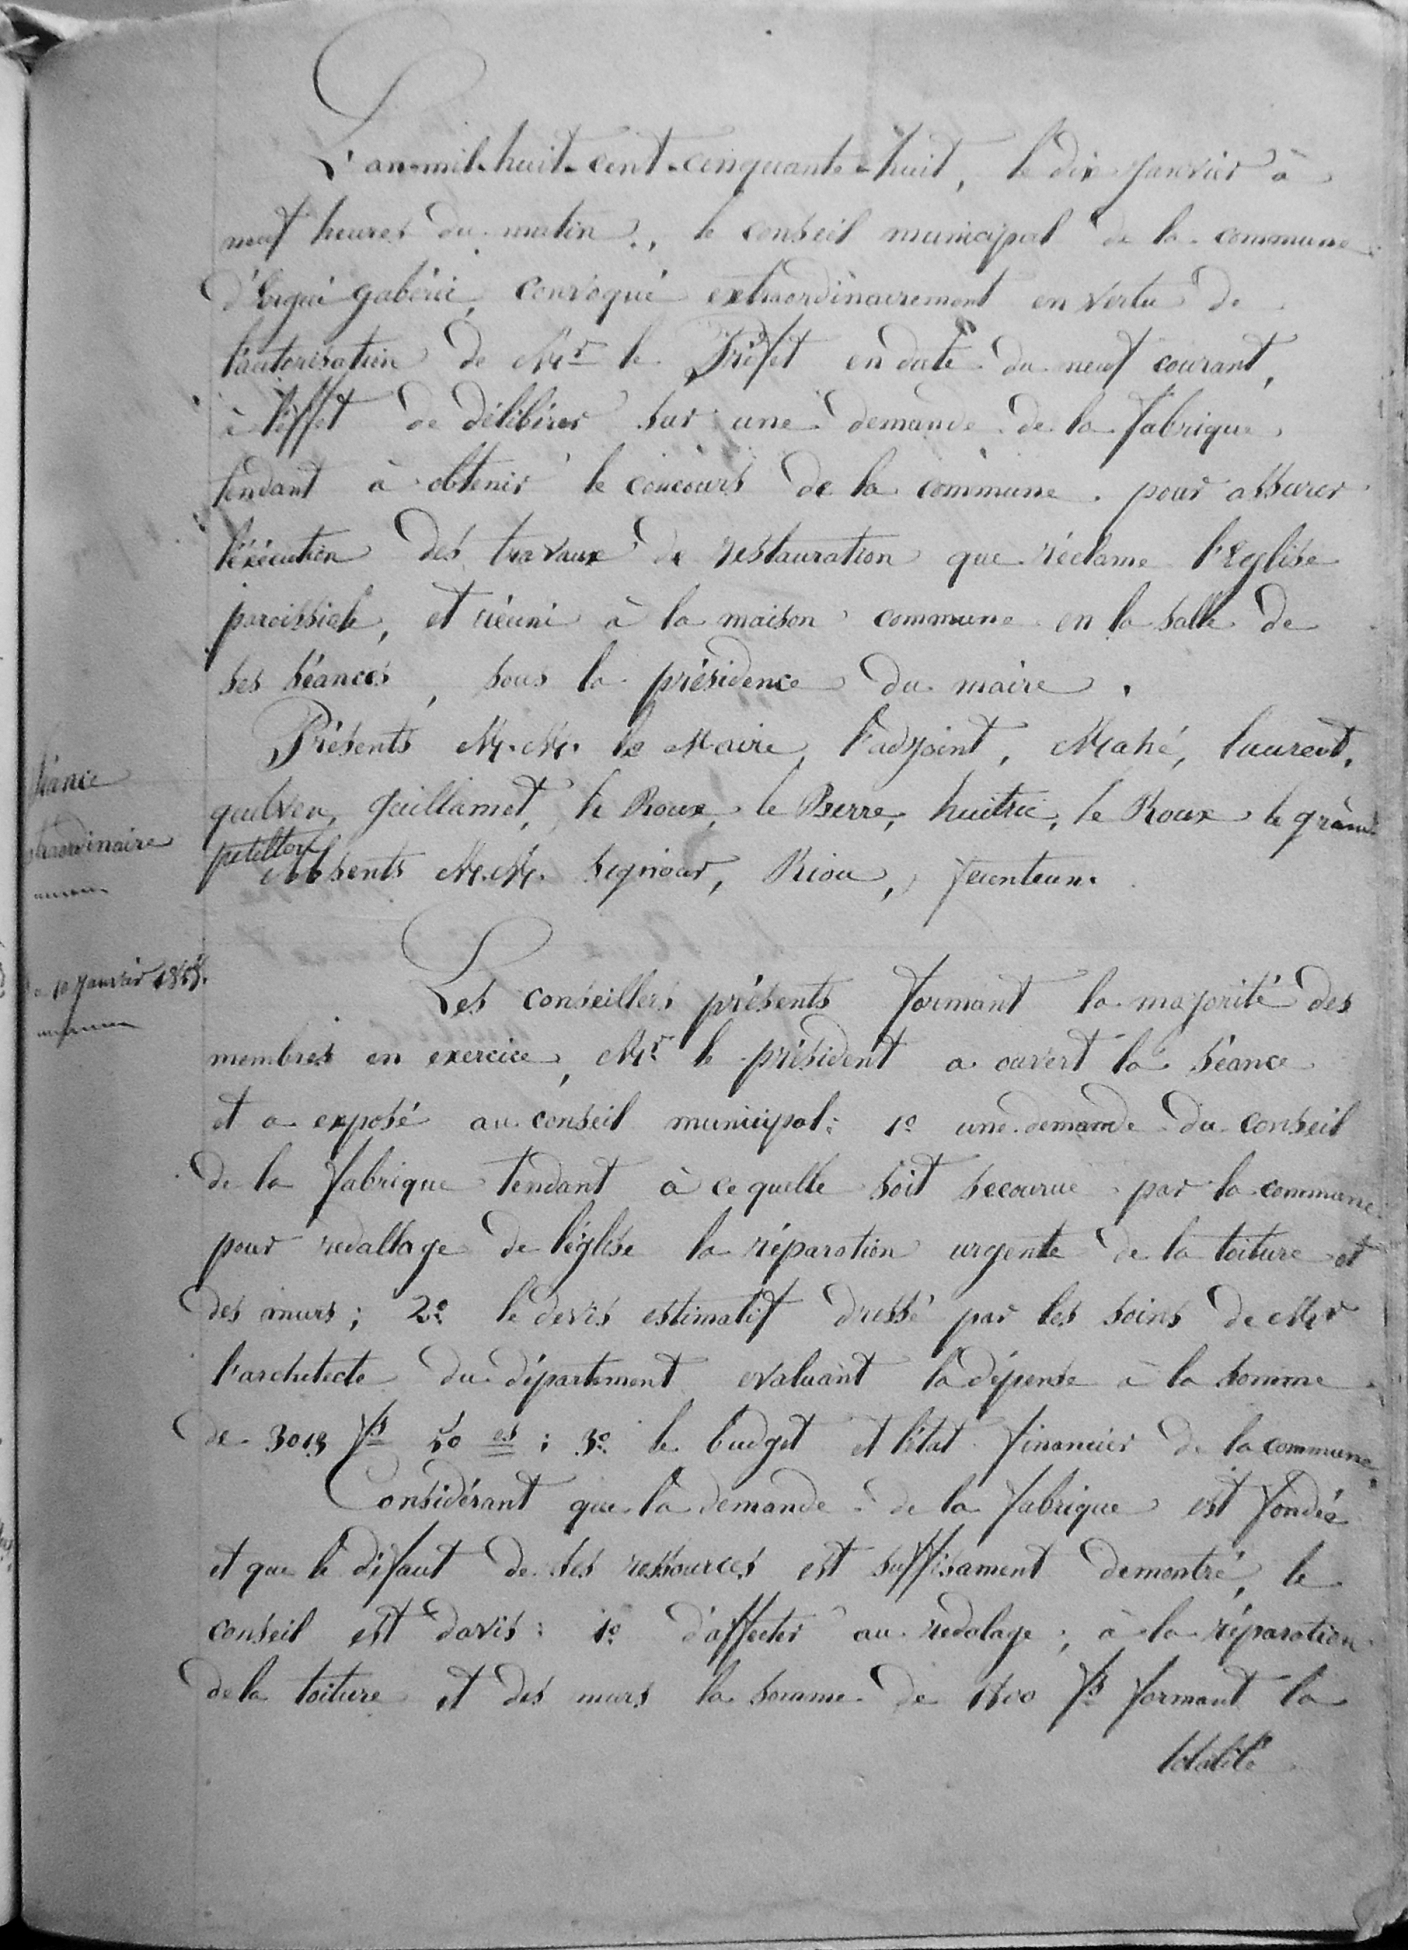 L'an-mil-huit-cent-cinquante-huit, le dix janvier à
neuf heures du matin, le conseil municipal de la commune
d'Ergué gabéric, convoqué extraordinairement en vertu de
l'autorisation de Mr le Préfet en date du neuf courant,
à l'effet de délibérer sur une demande de la fabrique
tendant à obtenir le concours de la commune pour assurer
l'éxécution des travaux de restauration que réclame l'Eglise
paroissiale, et réuni à la maison commune en la salle de
ses séances, sous la présidence du maire.
Présents M.M. le Maire, l'adjoint, Mahé, laurent,
Séance
quelven, Gaillamet, le Roux, le Berre, huitric, le Roux le grand
extraordinaire
petillon
Absents M.M. Seznour, Riou, feunteun.
10 Janvier 1858.
Les conseillers présents formant la majorité des
membres en exercice, Mr le président a ouvert la séance
et a exposé au conseil municipal: 1º une demande du conseil
de la fabrique tendant à ce quelle soit secourue par la commune
pour redallage de l'église la réparation urgente de la toiture et
des murs; 2º le devis estimatif dressé par les soins de Mr
l'architecte du département evaluant la dépense à la somme
de 3013 fs 50 es; 3º le budget et l'état financier de la commune.
Considérant que la demande de la fabrique est fondée
et que le défaut de ses ressources est suffisament demontré, le
conseil est davis: 1º d'affecter au redalage, à la réparation
de la toiture et des murs la somme de 1800 fs formant la
totalité